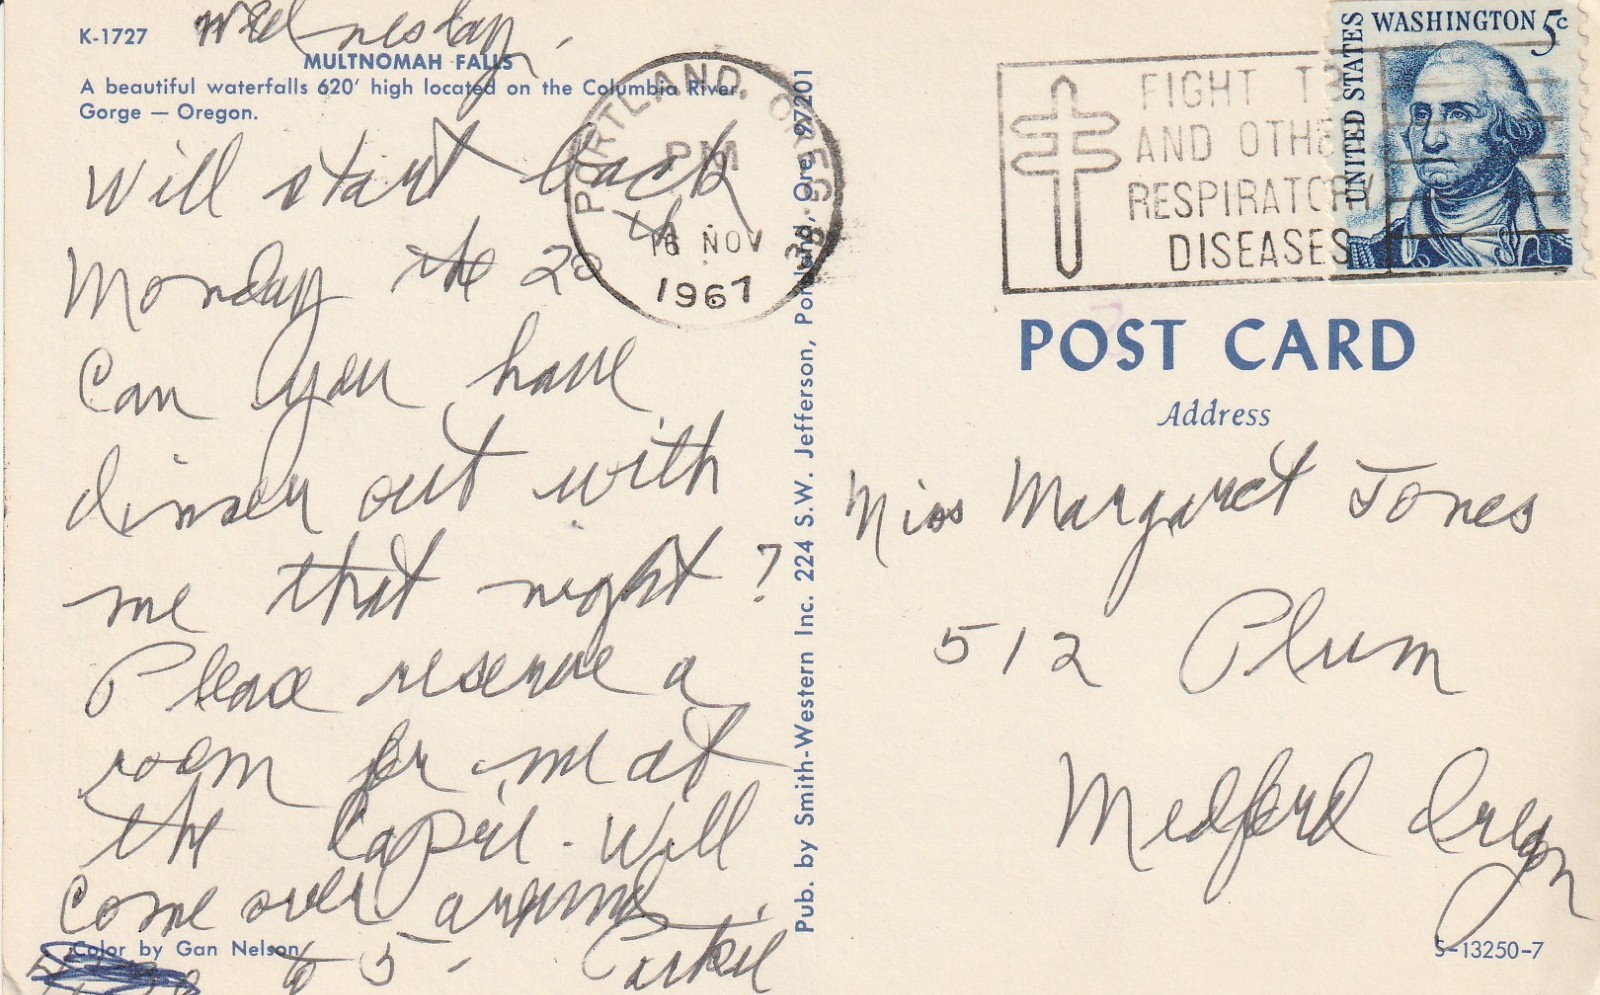 K-1727
Wednesday
MULTNOMAH FALLS
A beautiful waterfalls 620' high located on the Columbia River
Gorge — Oregon.
Will start back
Monday the 20th
Can you have
dinner out with
me that night?
Please reserve a
room for me at
the Capri. Will
come over around
to 5 -
Color by Gan Nelson
Pub. by Smith-Western Inc. 224 S.W. Jefferson, Portland, Ore. 97201
PORTLAND, OREG
PM
16 NOV
1967
FIGHT TB
AND OTHER
RESPIRATORY
DISEASES
UNITED STATES
WASHINGTON 5c
POST CARD
Address
Miss Margaret Jones
512 Plum
Medford Oregon
S-13250-7